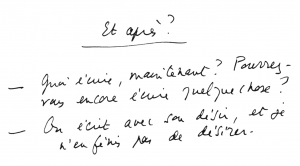 Et après ?
— Quoi écrire, maintenant ? Pourrez-
vous encore écrire quelque chose ?
— On écrit avec son désir, et je
n'en finis pas de désirer.